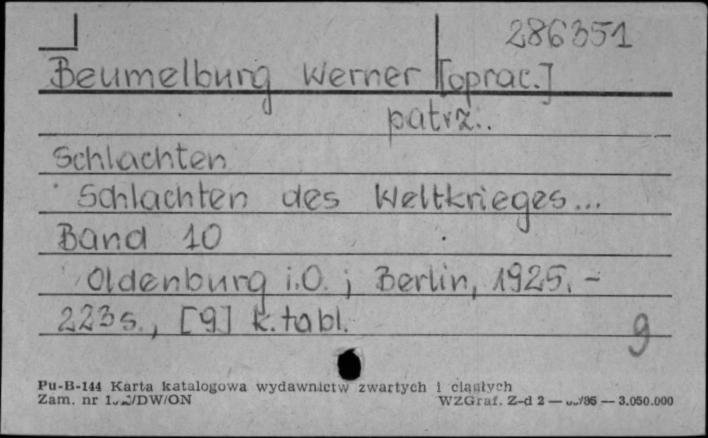 286351
Beumelburg Werner [oprac.]
patrz:.
Schlachten
Schlachten des Weltkrieges...
Band 10
Oldenburg i.O. ; Berlin, 1925. -
223s., [9] k. tabl.
9
Pu-B-144 Karta katalogowa wydawnictw zwartych i ciągłych
Zam. nr /DW/ON WZGraf. Z-d 2 — /86 — 3.050.000